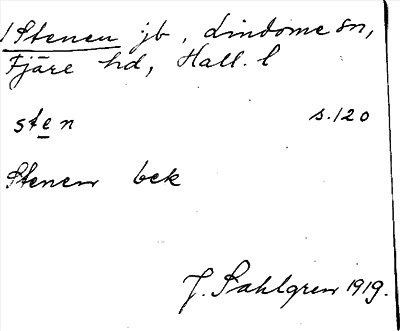 1 Stenen jb, Lindome sn,
Fjäre hd, Hall. l
sten s.120
Stenen bek
J. Sahlgren 1919.